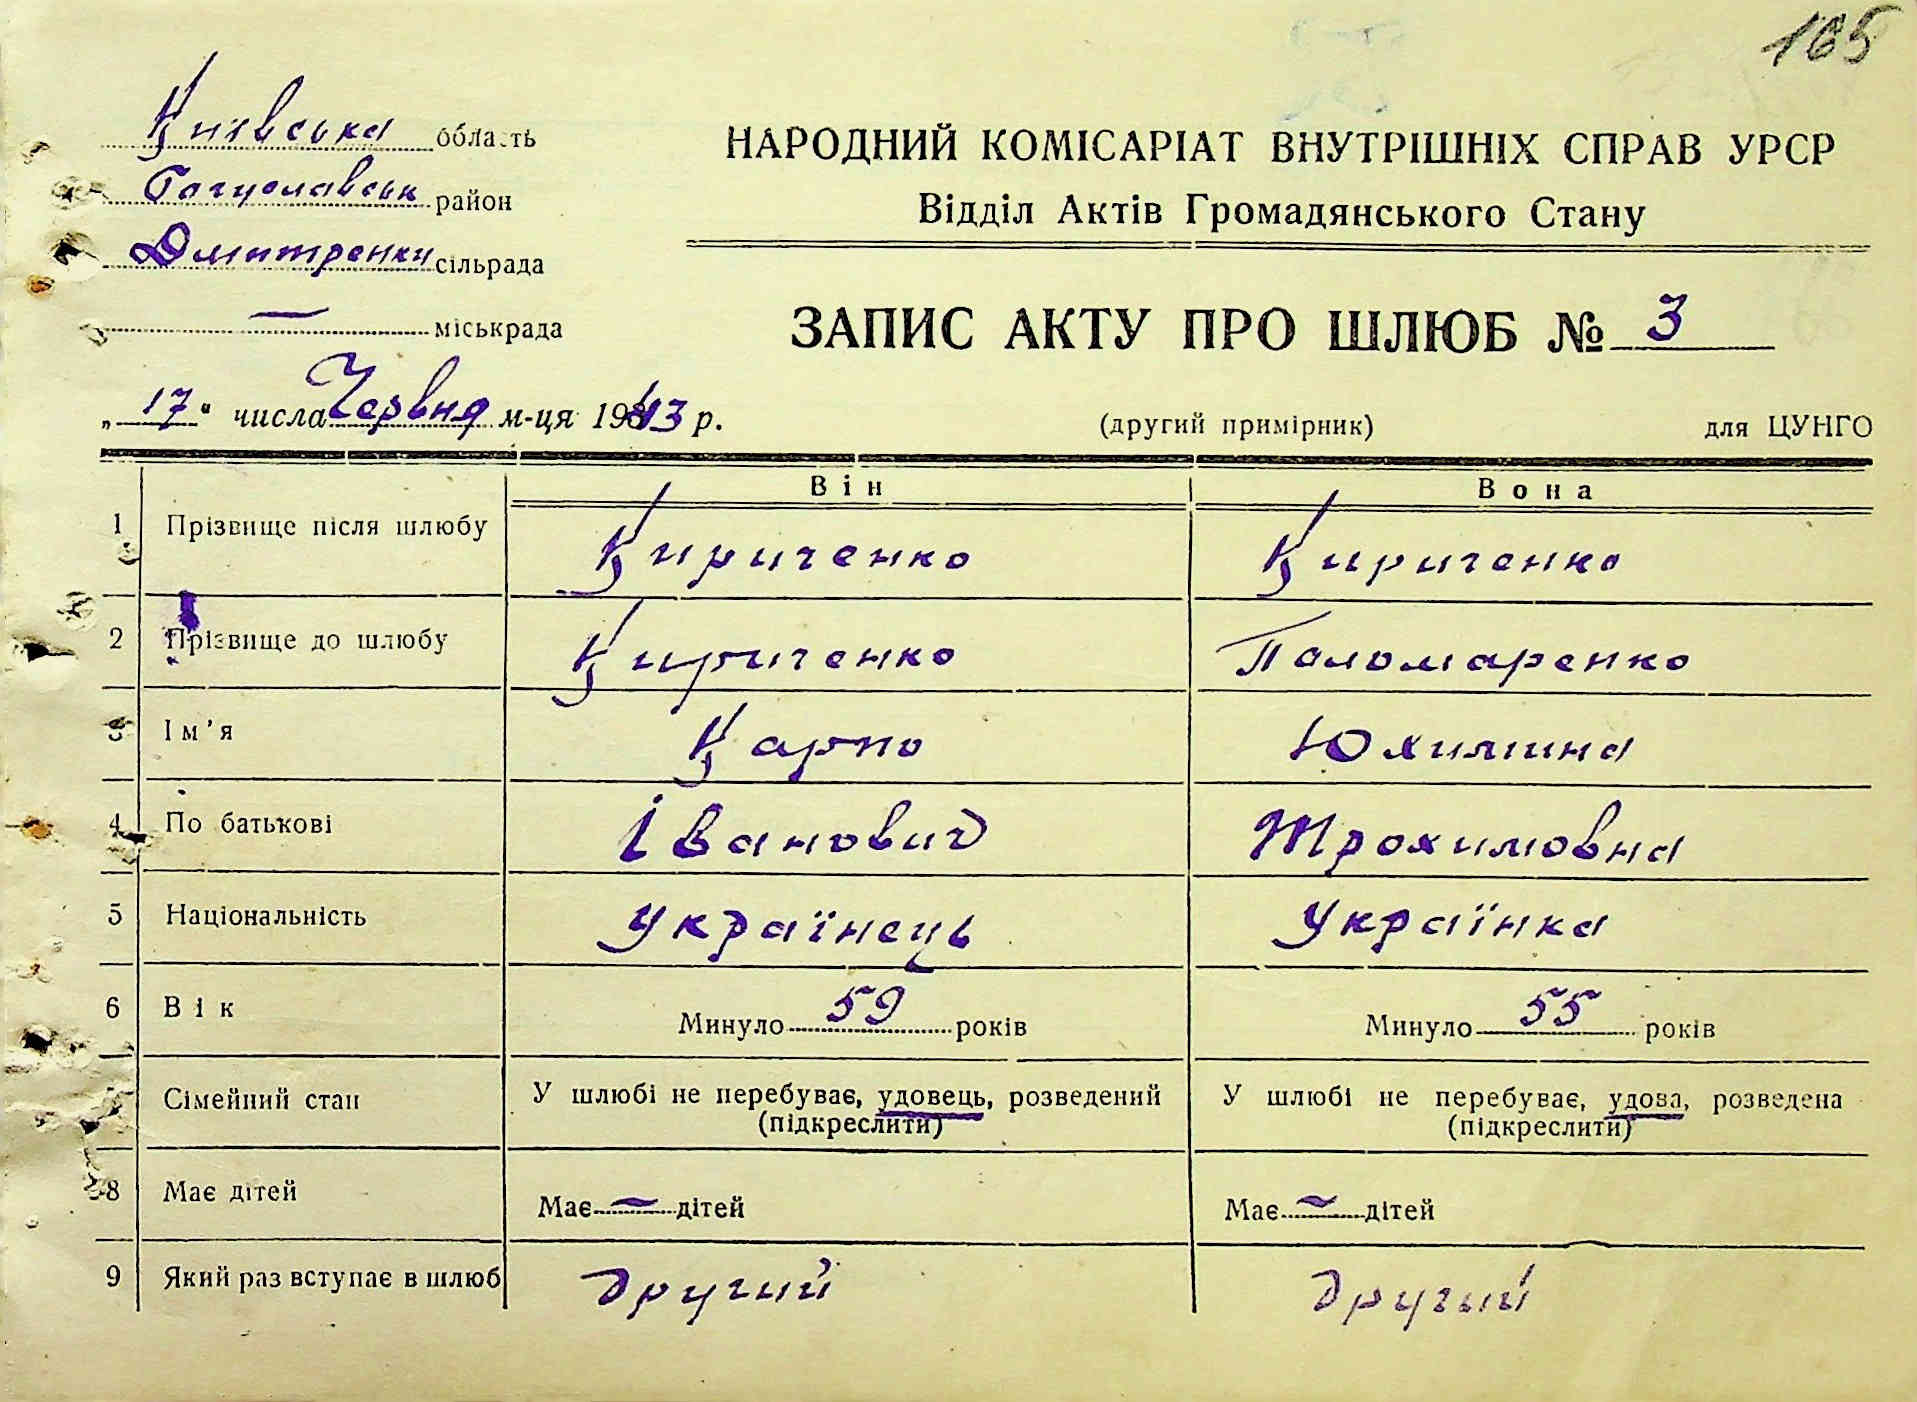 165
Київська область
Богуславськ район
Дмитренки сільрада
— міськрада
НАРОДНИЙ КОМІСАРІАТ ВНУТРІШНІХ СПРАВ УРСР
Відділ Актів Громадянського Стану
ЗАПИС АКТУ ПРО ШЛЮБ № 3
„17" числа Червня м-ця 1943 р.
(другий примірник) для ЦУНГО
Він Вона
1 Прізвище після шлюбу Кириченко Кириченко
2 Прізвище до шлюбу Кириченко Паломаренко
3 Ім'я Карпо Юхимина
4 По батькові Іванович Трохимовна
5 Національність українець українка
6 Вік Минуло 59 років Минуло 55 років
Сімейний стан У шлюбі не перебуває, удовець, розведений У шлюбі не перебуває, удова, розведена
(підкреслити) (підкреслити)
8 Має дітей Має — дітей Має — дітей
9 Який раз вступає в шлюб другий другий